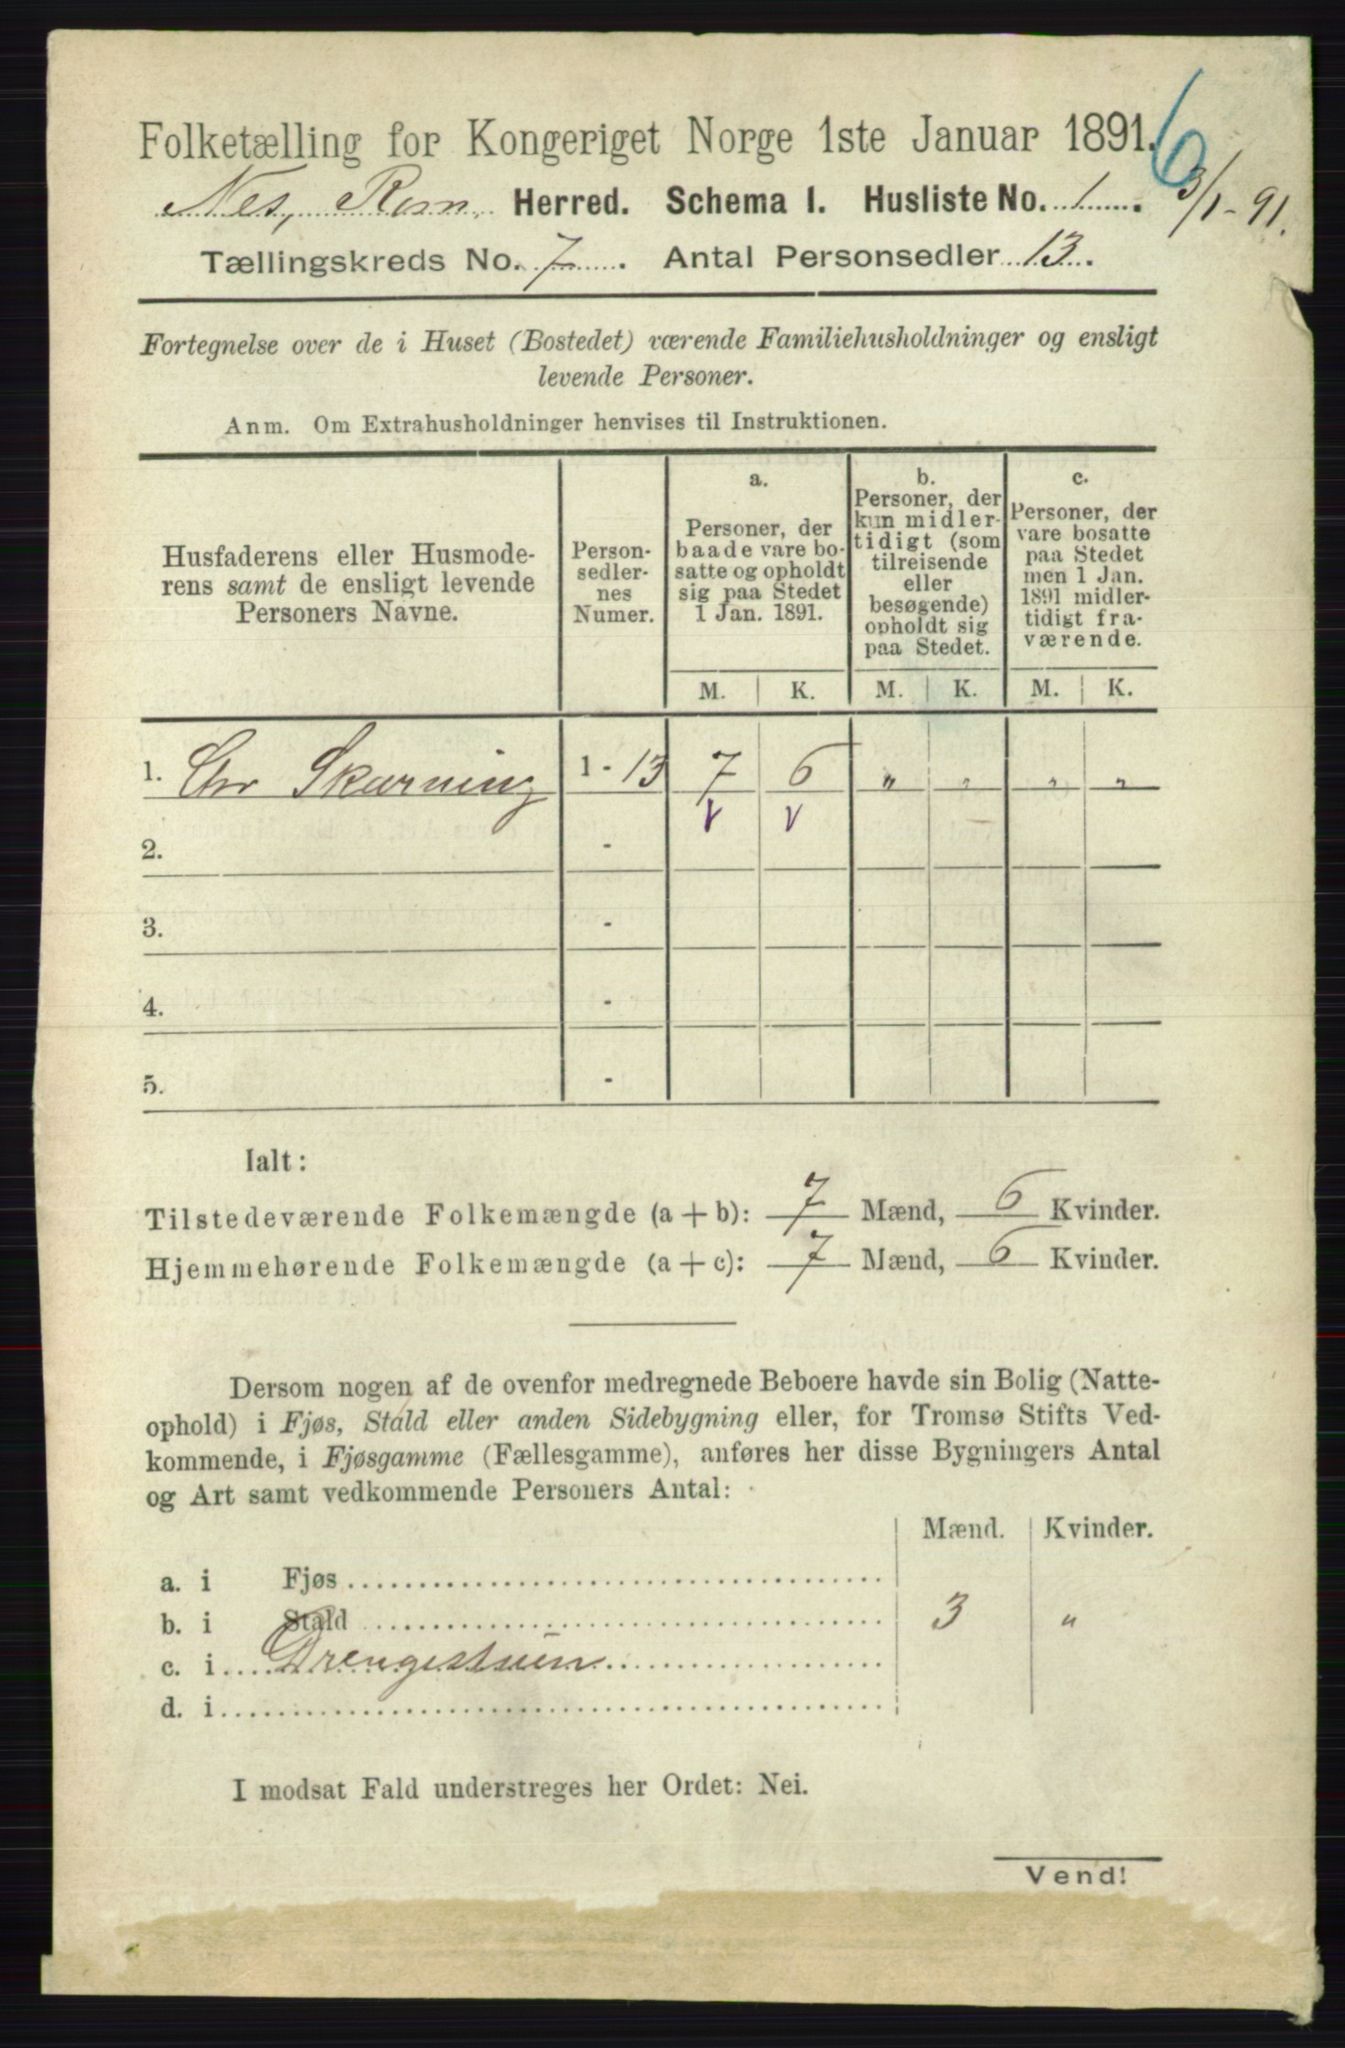 Folketælling for Kongeriget Norge 1ste Januar 1891.
6
Nes, Rom. Herred. Schema I. Husliste No. 1. 3/1-91.
Tællingskreds No. 7. Antal Personsedler 13.
Fortegnelse over de i Huset (Bostedet) værende Familiehusholdninger og ensligt
levende Personer.
Anm. Om Extrahusholdninger henvises til Instruktionen.
Husfaderens eller Husmode-
rens samt de ensligt levende
Personers Navne.
Person-
sedler-
nes
Numer.
a.
Personer, der
baade vare bo-
satte og opholdt
sig paa Stedet
1 Jan. 1891.
b.
Personer, der
kun midler-
tidigt (som
tilreisende
eller
besøgende)
opholdt sig
paa Stedet.
c.
Personer, der
vare bosatte
paa Stedet
men 1 Jan.
1891 midler-
tidigt fra-
værende.
M. K. M. K. M. K.
1. Chr Skarning 1 - 13 7 6 " " " "
V V
2. -
3. -
4. -
5. -
Ialt:
Tilstedeværende Folkemængde (a + b): 7 Mænd, 6 Kvinder.
Hjemmehørende Folkemængde (a + c): 7 Mænd, 6 Kvinder.
Dersom nogen af de ovenfor medregnede Beboere havde sin Bolig (Natte-
ophold) i Fjøs, Stald eller anden Sidebygning eller, for Tromsø Stifts Ved-
kommende, i Fjøsgamme (Fællesgamme), anføres her disse Bygningers Antal
og Art samt vedkommende Personers Antal:
Mænd. Kvinder.
a. i Fjøs
b. i Stald 3 "
c. i Drengestuen
d. i
I modsat Fald understreges her Ordet: Nei.
Vend!